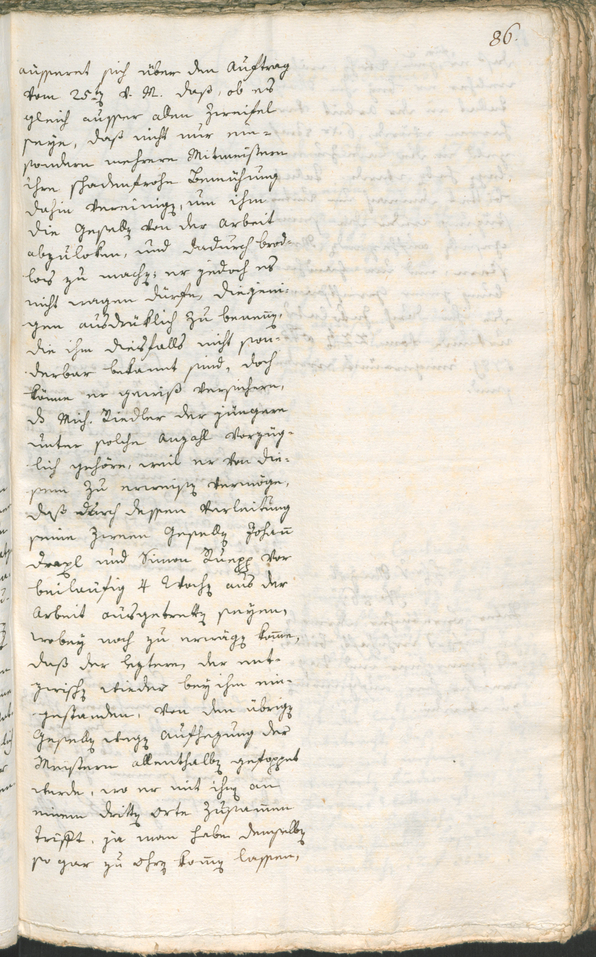 86.
äusseret sich über den Auftrag
vom 25.ten d. M. daß, ob es
gleich ausser allen Zweifel
seye, daß nicht nur ein-
sondern mehrere Mitmeistern
ihre schadenfrohe Bemühung
dahin vereinigen, um ihm
die Gesellen von der Arbeit
abzuloken, und dadurch brod-
los zu machen; er jedoch es
nicht wagen dürfe, diejeni-
gen ausdrüklich zu benennen,
die ihm diesfalls nicht son-
derbar bekannt sind, doch
könne er gewiß versichern,
dß Mich. Riedler der jüngere
unter solche Anzahl vorzüg-
lich gehöre, weil er von die-
sem zu erweisen vermöge,
daß durch dessen Verleitung
seine zween Gesellen Johann
Draxl und Simon Ruepp vor
beiläufig 4 Wochen aus der
Arbeit ausgetretten seyen,
wobey noch zu erwägen komme,
daß der leztere, der ent-
zwischen wieder bey ihm ein-
gestanden, von den übrigen
Gesellen wegen Aufhezung der
Meistern allenthalben gefoppet
werde, wo er mit ihnen an
einem dritten Orte zusammen
trifft, ja man habe demselben
so gar zu Ohren kommen lassen,